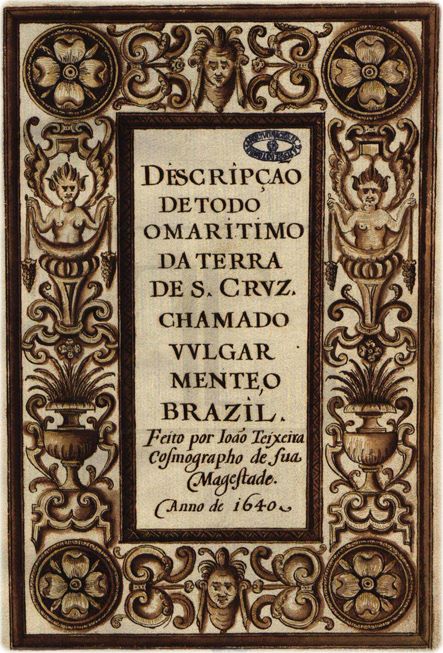 DESCRIPÇAO
DETODO
OMARITIMO
DA TERRA
DE S. CRVZ.
CHAMADO
VVLGAR
MENTE,O
BRAZIL.
Feito por Ioão Teixeira
Cosmographo de sua
Magestade.
Anno de 1640